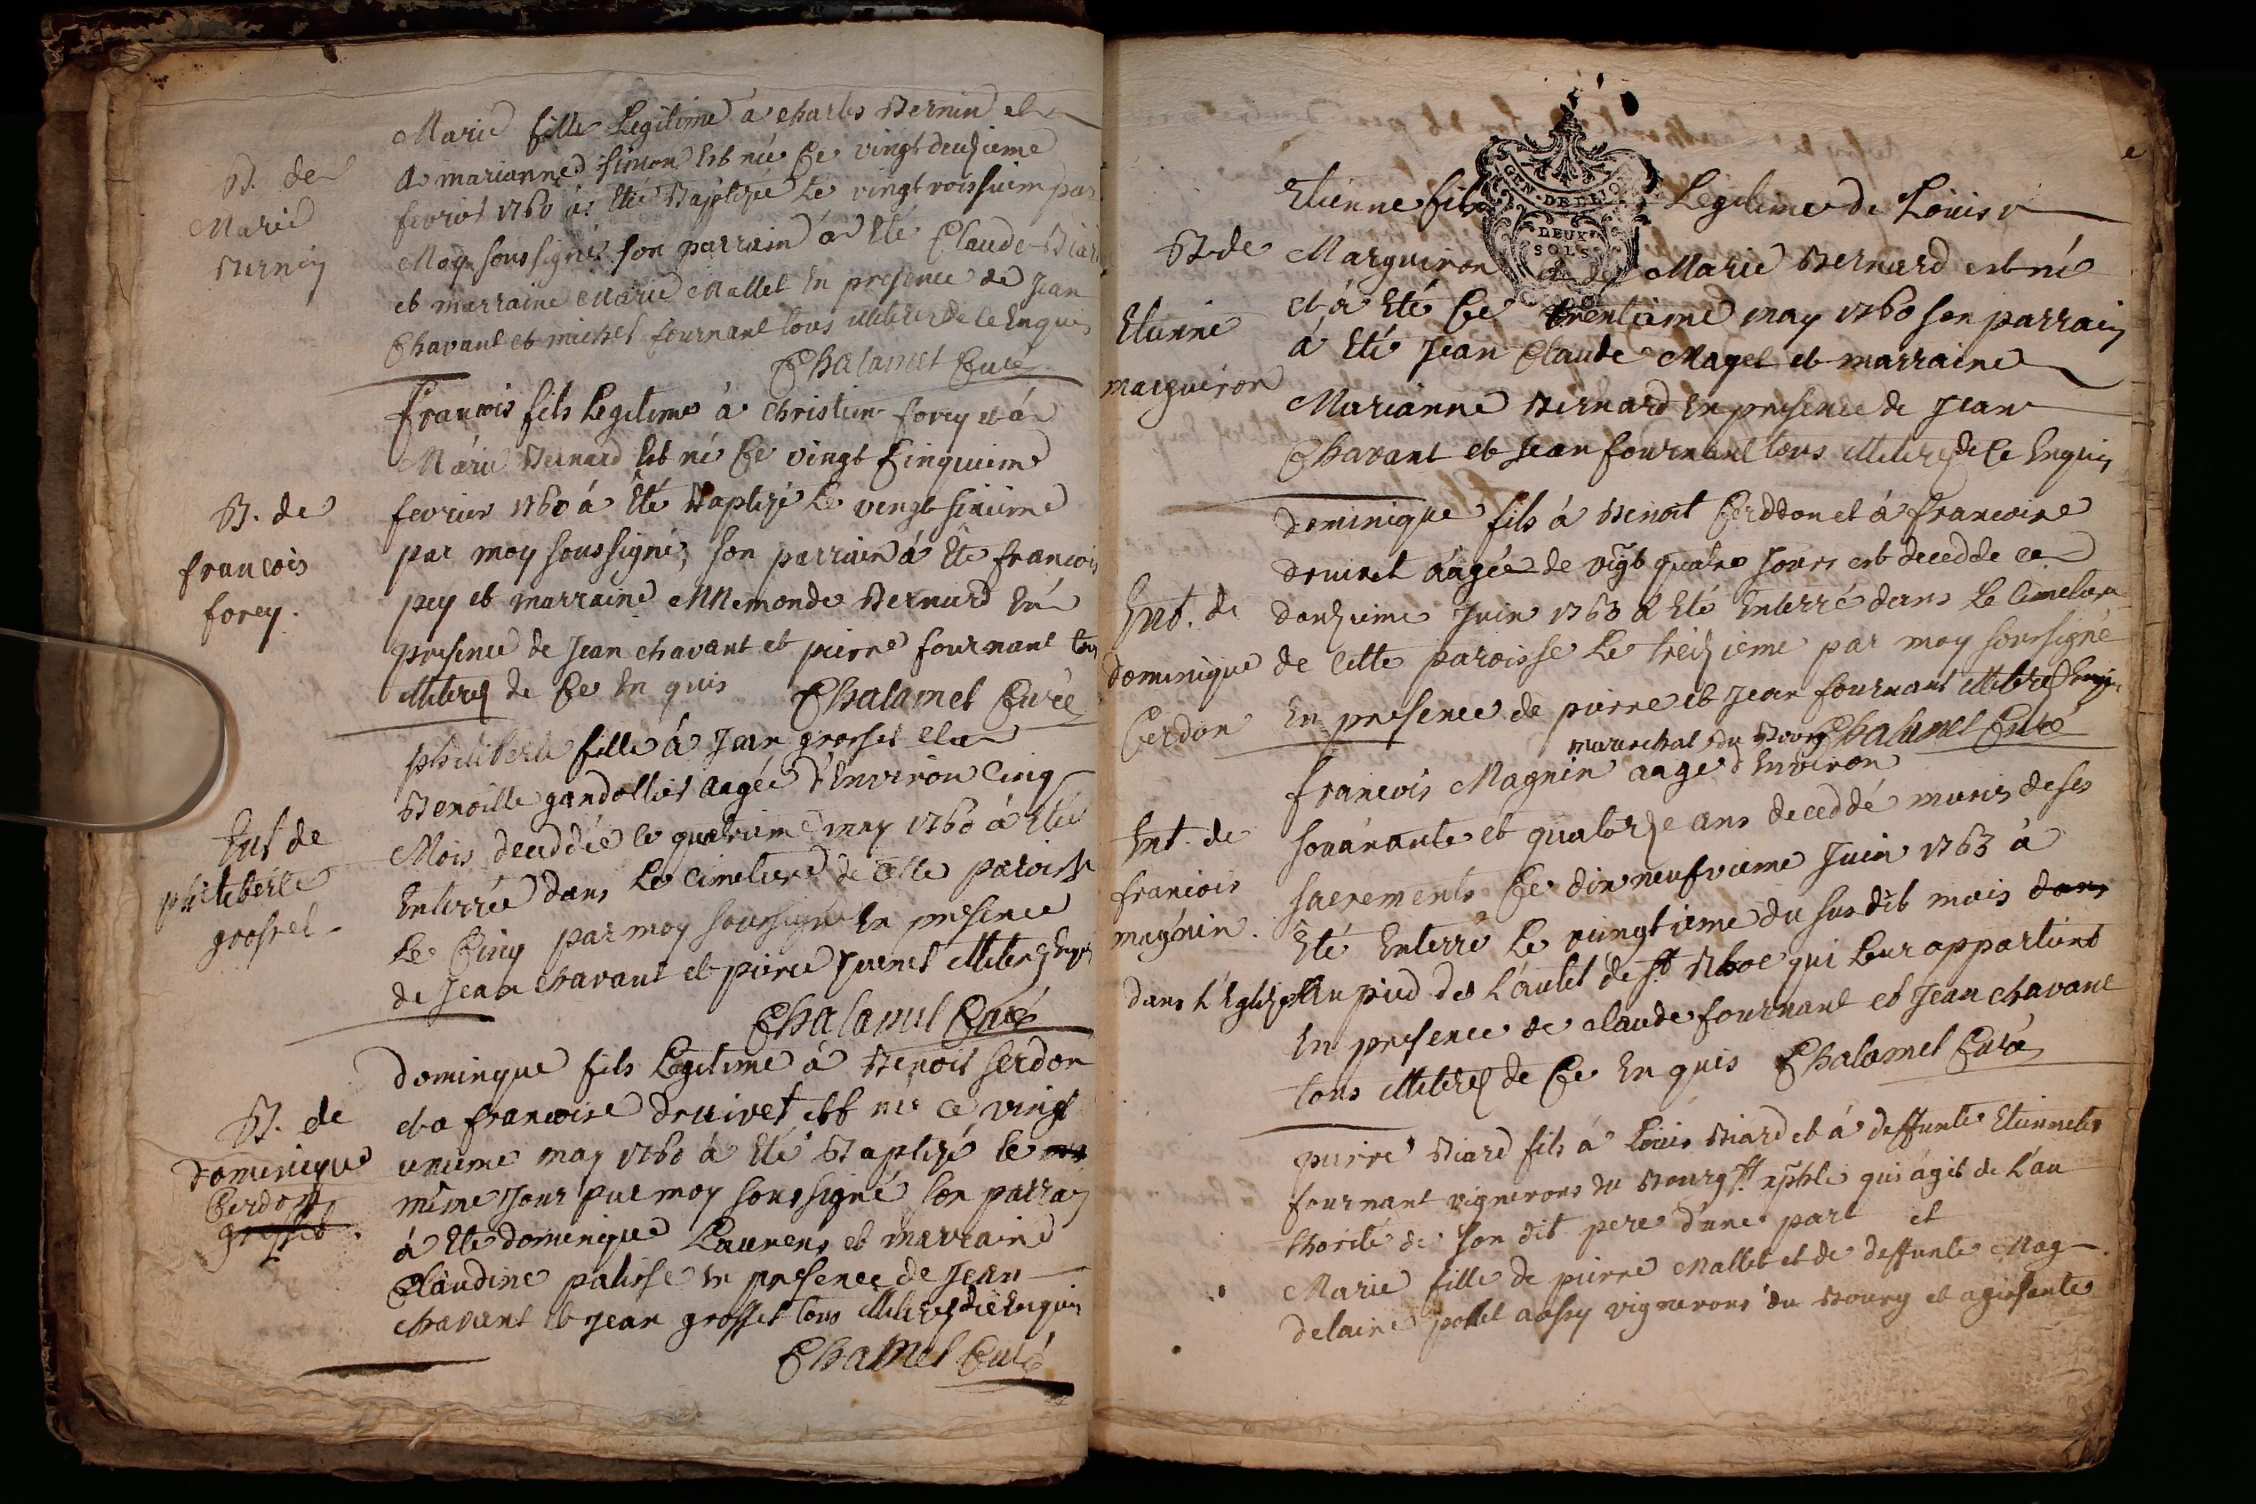 B. de
Marie
Bernin
Marie fille Legitime a charles Bernin et
a marianne simon Est née Ce vingt deuzieme
fevrier 1760 a Eté Baptizée Le vingt troissiem par
Moy soussigné son parrain a Eté Claude Biard
et marraine Marie Mallet En presence de Jean
Chavant et michel fournant tous illiterés de ce Enquis
Chalamel Curé
B. de
francois
forey.
francois fils Legitime á christin forey et á
Marie Bernard Est né Ce vingt Cinquieme
fevrier 1760 á Eté Baptizé Le vingt sixieme
par moy soussigné, son parrain á Eté francois
pey et marraine Annemonde Bernard En
presence de Jean chavant et pierre fournant tous
illiterés de Ce En quis Chalamel Curé
Ent de
philiberte
grosset
philiberte fille á Jean grosset et a
Benoitte gandolliet aagée d'Environ Cinq
Mois deceddée le quatrieme may 1760 á Eté
Enterrée dans Le Cimetiere de Cette paroisse
Le Cinq par moy soussigné En presence
de Jean chavant et pierre Juenet illiterés Enquis
Chalamel Curé
B. de
Dominique
Cerdon
grosset.
Dominque fils Legitime á Benoit serdon
et a francoise Druivet est né ce vingt
unieme may 1760 á Eté Baptizé le
même Jour par moy soussigné son parrain
á Eté Dominique Laurens et marraine
Claudine palisse En presence de Jean
chavant et Jean grosset tous illiterés de ce Enquis
Chalamel Curé
GEN. DE
DEUX
SOLS
B. de
Etienne
marguiron
Etienne fils Legitime de Louis
Marguiron et de Marie Bernard est né
et á Eté Ce trentieme may 1760 son parrain
á Eté Jean Claude Magel et marraine
Marianne Bernard En presence de Jean
Chavant et Jean fournant tous illiterés de Ce Enquis
Ent. de
Dominique
Cerdon
Dominique fils á Benoit Cerddon et á francoise
Druivet áagée de vigt quatre Jours est decedde ce
douzieme Juin 1763 á Eté Enterré dans Le Cimetiere
de Cette paroisse Le treizieme par moy soussigné
En presence de pierre et Jean fournant illiterés Enquis
Chalamel Curé
Ent. de
francois
magnin.
marechal du Bourg
francois Magnin aagé d'Environ
soixante et quatorze ans deceddé munis de ses
sacrements Ce dix neufvieme Juin 1763 á
Eté Enterré Le vingtieme du susdit mois dans
dans L'Eglize Au pied de L'autel de st Roc qui Leur appartient
En presence de claude fournant et Jean chavant
tous illiterés de Ce En quis Chalamel Curé
pierre Biard fils á Louis Biard et á deffunte Etiennette
fournant vignerons du Bourg qui ágit de L'au
thorité de son dit pere d'une part et
Marie fille de pierre Mallet et de deffunte Mag
delaine pollet aussy vignerons du Bourg et agissante